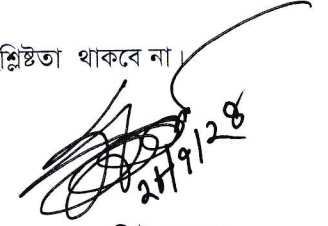 শ্লিষ্টতা থাকবে না।
২৮/৭/২৪